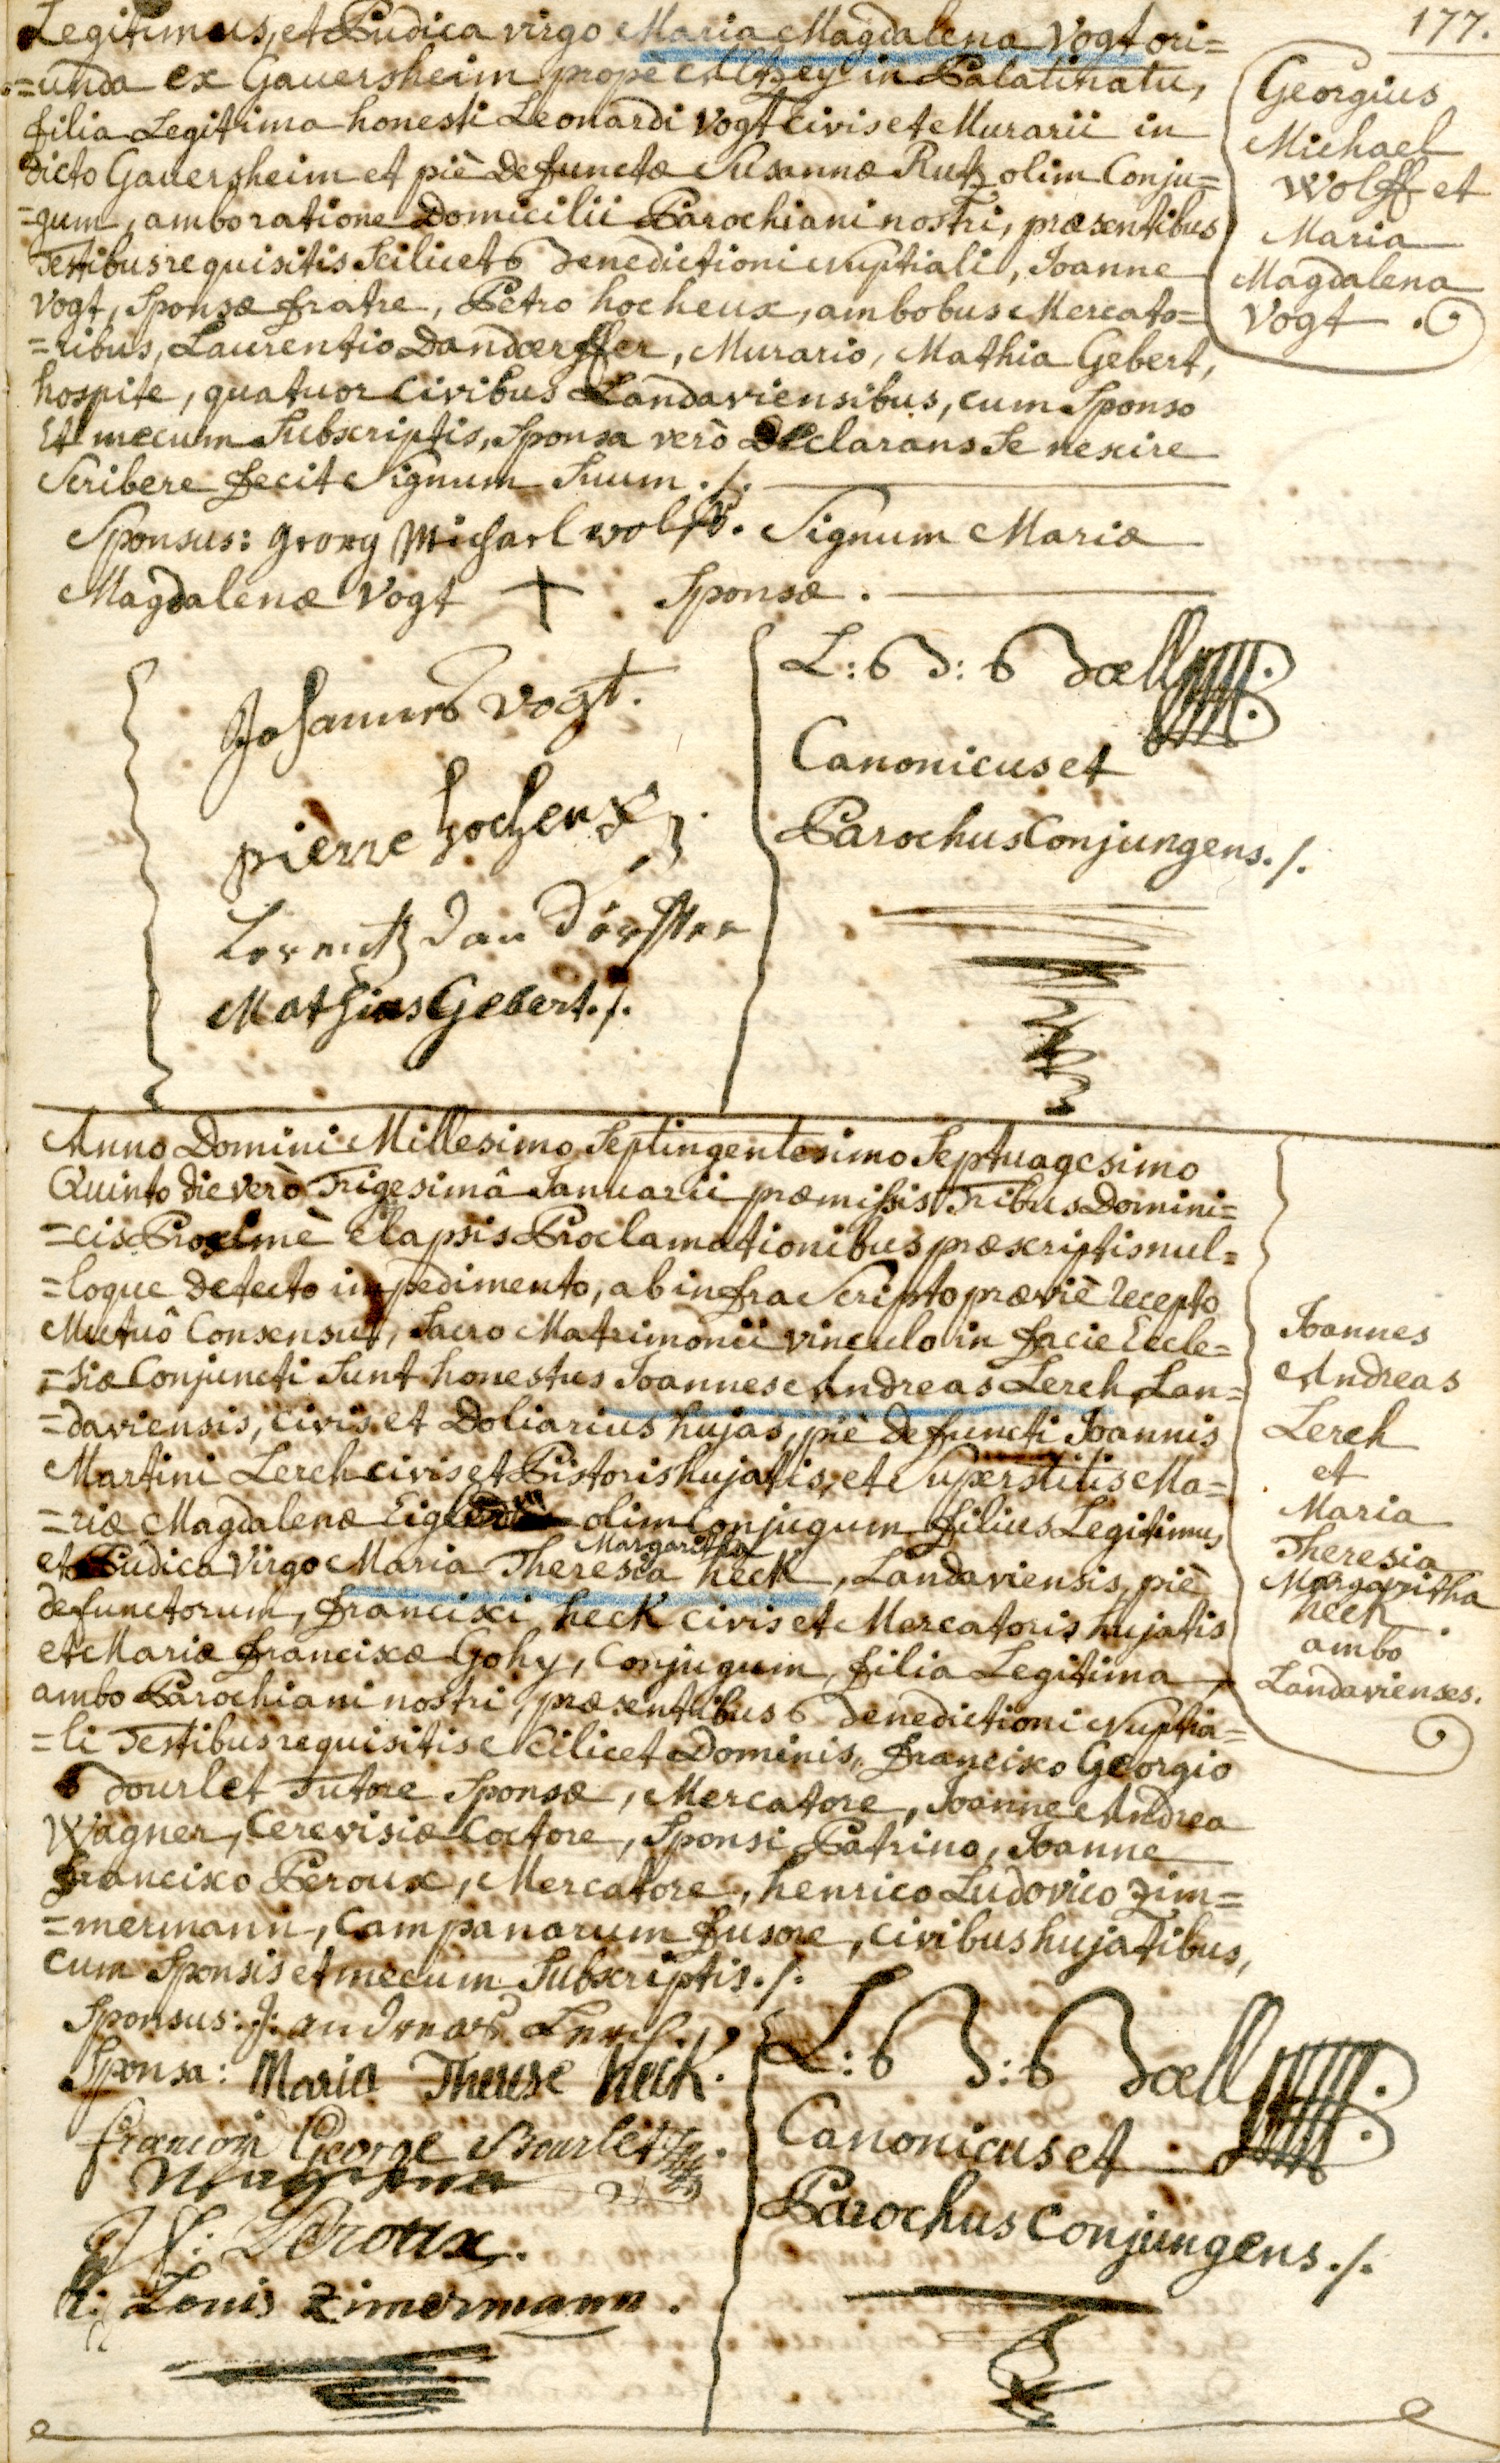 177.
Legitimus, et Pudica virgo Maria Magdalena Vogt ori=
=unda ex Gauersheim propè Altzey in Palatinatu,
filia Legitima honesti Leonardi Vogt civis et Murarii in
dicto Gauersheim et piè defunctæ Susannæ Rutz olim Conju=
=gum, ambo ratione Domicilii Parochiani nostri, præsentibus
Testibus requisitis Scilicet Benedictioni Nuptiali, Joanne
Vogt, Sponsæ fratre, Petro hocheux, ambobus Mercato=
=ribus, Laurentio Dandœrffer, Murario, Mathia Gebert,
hospite, quatuor Civibus Landaviensibus, cum Sponso
Et mecum Subscriptis, Sponsa verò Declarans Se nescire
Scribere fecit Signum Suum ./.
Georgius
Michael
Wolff et
Maria
Magdalena
Vogt .
Sponsus: Georg Michael wolff. Signum Mariæ
Magdalenæ Vogt + Sponsæ .
Johannes Vogt.
pierre hocheux
Lorentz Dandörffer
Mathias Gebert ./.
L: B: Bœll
Canonicus et
Parochus Conjungens ./.
Anno Domini Millesimo Septingentesimo Septuagesimo
Quinto die verò Trigesimâ Januarii præmissis Tribus Domini=
=cis Proximè elapsis Proclamationibus præscriptis nul=
=loque detecto impedimento, ab infra Scripto præviè recepto
Mutuô Consensu, Sacro Matrimonii vinculo in facie Eccle=
=siæ Conjuncti Sunt honestus Joannes Andreas Lerch Lan=
=daviensis, civis et Doliarius hujas, piè defuncti Joannis
Martini Lerch civis et Pistoris hujatis, et Superstitis Ma=
=riæ Magdalenæ olim Conjugum filius Legitimus,
Margaritha
et Pudica Virgo Maria Theresia heck, Landaviensis, piè
defunctorum, francisci heck civis et Mercatoris hujatis
et Mariæ franciscæ Gohy, Conjugum, filia Legitima,
ambo Parochiani nostri, præsentibus Benedictioni Nuptia=
=li Testibus requisitis Scilicet Dominis, francisco Georgio
Bourlet Tutore Sponsæ, Mercatore, Joanne Andrea
Wagner, Cerevisiæ Coctore, Sponsi Patrino, Joanne
francisco Peroux, Mercatore, henrico Ludovico Zim=
=mermann, Campanarum fusore, civibus hujatibus,
cum Sponsis et mecum Subscriptis ./.
Joannes
Andreas
Lerch
et
Maria
Theresia
Margaritha
heck
ambo
Landavienses.
Sponsus: J: andreas Lerch
Sponsa: Maria Therese heck.
françois George Bourlet
Wagner
J f: Peroux.
h: Louis Zimermann .
L: B: Bœll
Canonicus et
Parochus Conjungens ./.